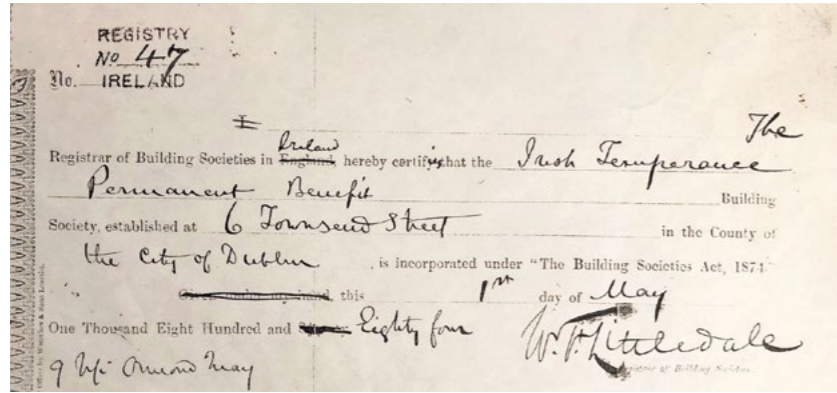 REGISTRY
No 47
No. IRELAND
I The
Registrar of Building Societies in England, Ireland hereby certifies that the Irish Temperance
Permanent Benefit Building
Society, established at 6 Townsend Street in the County of
the City of Dublin, is incorporated under "The Building Societies Act, 1874"
Given under my hand, this 1st day of May
One Thousand Eight Hundred and Eighty four
W. F. Littledale
Registrar of Building Societies
9 Ormond